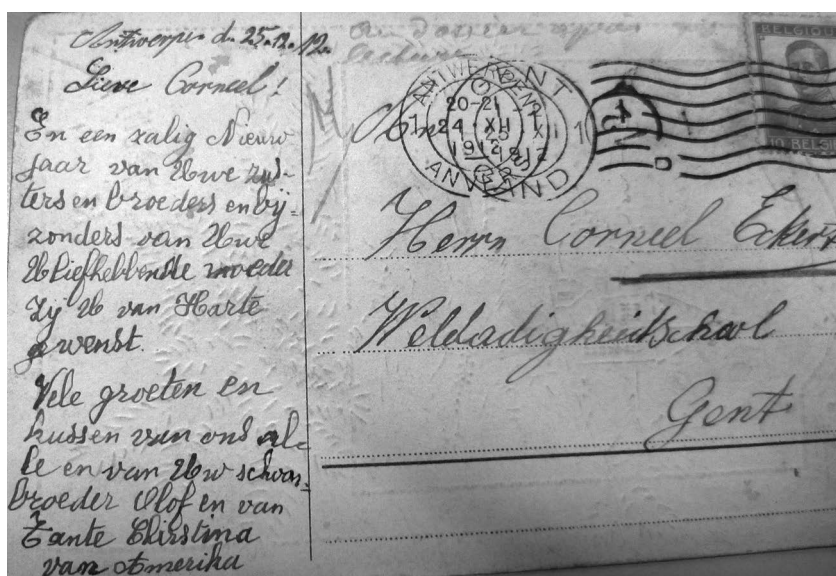 Antwerpen d. 25.12.12.
Lieve Corneel!
En een zalig Nieuw
jaar van Uwe zus-
ters en broeders en bij-
zonders van Uwe
U liefhebbenste moeder
Zij U van Harte
gewenst.
Vele groeten en
kussen van ons al-
le en van Uw schoon-
broeder Olof en van
Tante Chirstina
van Amerika
au dossier après
lecture
ANTWERPEN
20-21
24 XII
1912
ANVERS
GENT
25 XII
1912
GAND
BELGIQUE
10 BELGIË
Aan
Herrn Corneel Eckert
Weldadigheidschool
Gent